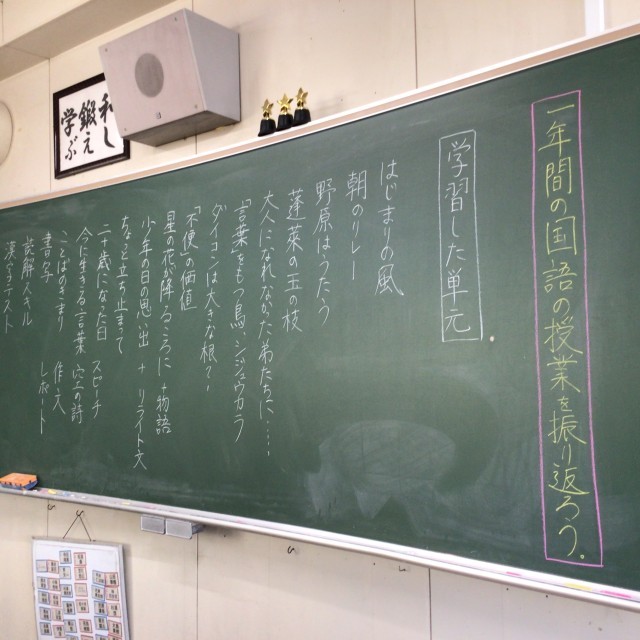 一年間の国語の授業を振り返ろう。
学習した単元。
はじまりの風
朝のリレー
野原はうたう
蓬莱の玉の枝
大人になれなかった弟たちに……
「言葉をもつ鳥、シジュウカラ
ダイコンは大きな根?
「不便」の価値
星の花が降るころに + 物語
少年の日の思い出 + リライト文
ちょっと立ち止まって
二十歳になった日 スピーチ
今に生きる言葉 空の詩
ことばのまとまり 作文
書写 レポート
読解スキル
漢字テスト
和し
鍛え
学ぶ